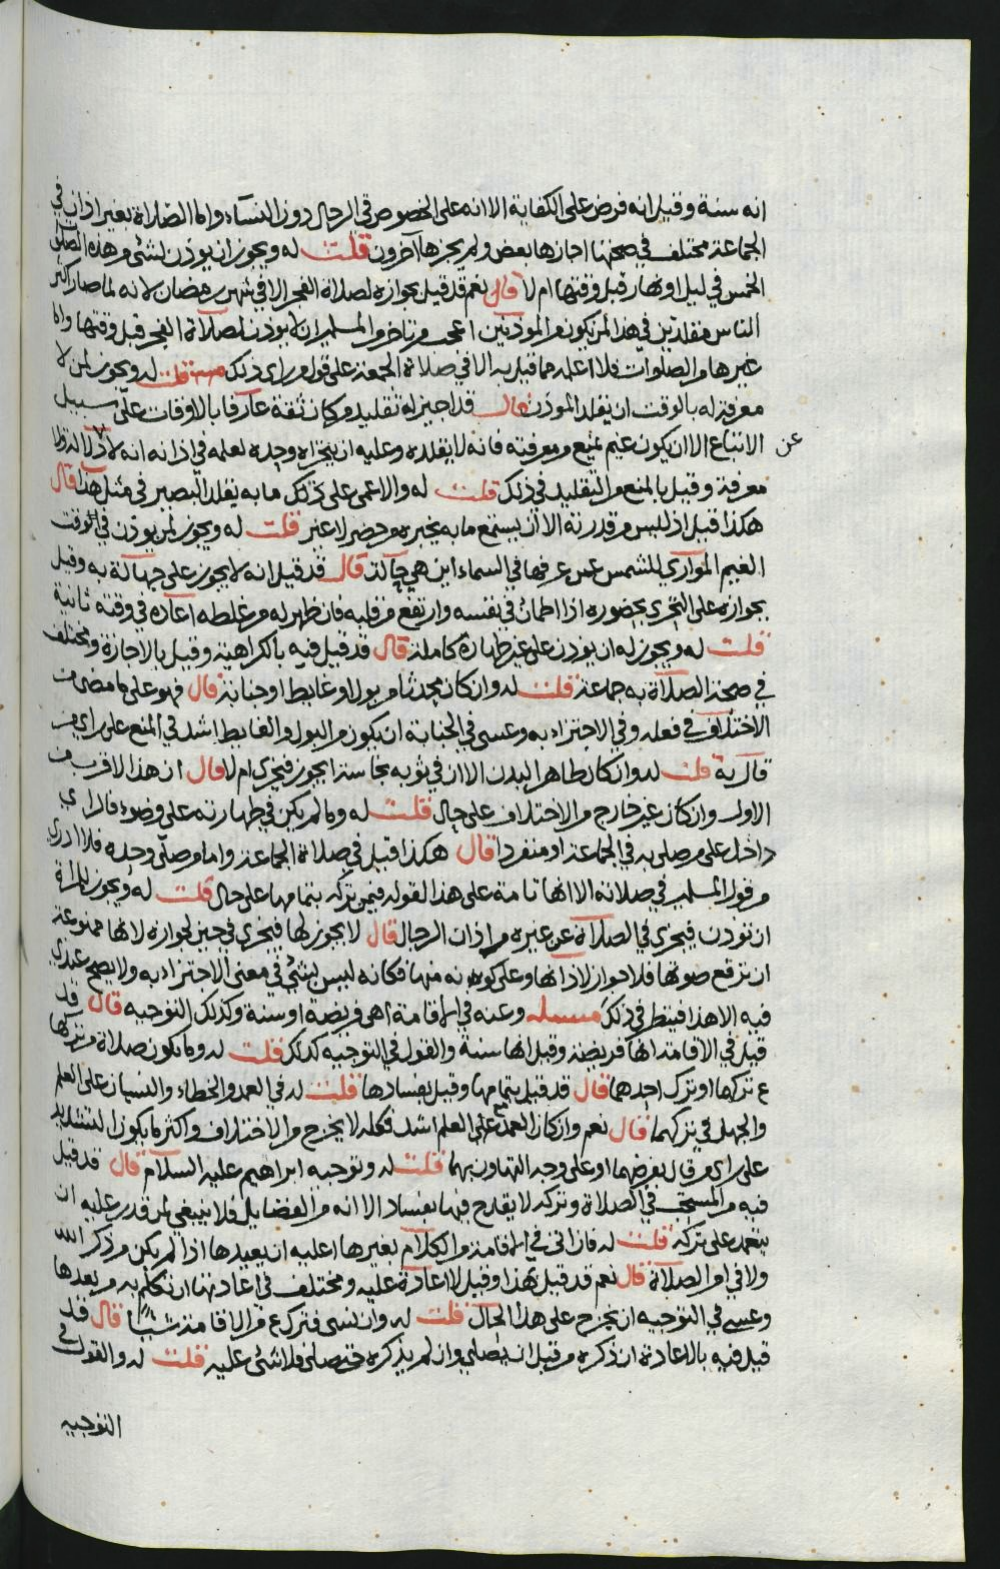 انه سنة وقيل انه فرض على الكفاية الا انه على الخصوص في الرجال دون النساء واما الصلاة بغير اذان في
الجماعة مختلف في صحتها اجازها بعض ولم يجزها آخرون قلت له ويجوز ان يوذن لشئ من هذه الصلوات
الخمس في ليل او نهار قبل وقتها ام لا قال نعم قد قيل بجوازه لصلاة الفجر الا في شهر رمضان لانه لما صار اكثر
الناس مقلدين في هذا لمن يكون من الموذنين اعجب من تاخر من المسلمين ان لا يوذن لصلاة الفجر قبل وقتها واما
غيرها من الصلوات فلا اعلمه مما قيل به الا في صلاة الجمعة على قول من راى ذلك قلت له ويجوز لمن لا
معرفة له بالوقت ان يقلد الموذن قال قد اجيز له تقليد من كان ثقة عارفا بالاوقات على سبيل
الاتباع الا ان يكون غيم يمنع من معرفته فانه لا يقلده وعليه ان يتحراه وحده لعله في اذانه انه
عن
معرفة وقيل بالمنع من التقليد في ذلك قلت له والاعمى على ذلك ما به يقلد البصير في مثل هذا قال
هكذا قيل اذ ليس من قدرته الا ان يستمع ما به يخبره من حضر لا غير قلت له ويجوز لمن يوذن في الوقت
الغيم المواري للشمس عن عرفها في السماء اين هي حالة قال قد قيل انه لا يجوز على جهالة به وقيل
بجوازه على التحري بحضوره اذا اطمان في نفسه وارتفع من قلبه فان ظهر له من غلطه اعاده في وقته ثانية
قلت له ويجوز له ان يوذن على غير طهارة كاملة قال قد قيل فيه بالكراهية وقيل بالاجازة ومختلف
في صحة الصلاة به جماعة قلت له وان كان محدثا من بول او غايط او جنابة قال فهو على ما مضى من
الاختلاف في فعله وفي الاجتزاء به وعسى في الجنابة ان يكون من البول والغايط اشد في المنع على راي من
قال به قلت له وان كان طاهر البدن الا ان في ثوبه نجاسة ايجوز فيجزي ام لا قال ان هذا لاقرب من
الاول وان كان غير خارج من الاختلاف على حال قلت له وما لم يكن في طهارته على وضوء فالراي
داخل على من صلى به في الجماعة او منفردا قال هكذا قيل في صلاة الجماعة واما من صلى وحده فلا ادري
من قول المسلمين في صلاته الا انها تامة على هذا القول فيمن تركه بتمامها على حال قلت له ويجوز للمراة
ان توذن فيجزي في الصلاة عن غيره من اذان الرجال قال لا يجوز لها فيجزي في حين لجوازه لانها ممنوعة
ان ترفع صوتها فلا جواز لاذانها وعلى كونه منها فكانه ليس بشئ في معنى الاجتزاء به ولا يصح عندي
فيه الا هذا فينظر في ذلك مسئلة وعنه في الاقامة اهي فريضة او سنة وكذلك التوجيه قال قد
قيل في الاقامة انها فريضة وقيل انها سنة والقول في التوجيه كذلك قلت له وما يكون صلاة من تركهما
ع تركها او ترك احدهما قال قد قيل بتمامها وقيل بفسادها قلت له في العمد والخطاء والنسيان على العلم
والجهل في تركهما قال نعم وان كان العمد على العلم اشد فكله لا يخرج من الاختلاف واكثر ما يكون التشديد
على راي من قال بفرضهما او على وجه التهاون بهما قلت له وتوجيه ابراهيم عليه السلام قال قد قيل
فيه من المستحب في الصلاة وتركه لا يقدح فيها بفساد الا انه من الفضايل فلا ينبغي لمن قدر عليه ان
يتعمد على تركه قلت له فان اتى في الاقامة من الكلام بغيرها اعليه ان يعيدها اذا لم يكن من ذكر الله
ولا في امر الصلاة قال نعم قد قيل بهذا وقيل لا اعادة عليه ومختلف في اعادتها ان تكلم به من بعدها
وعسى في التوجيه ان يخرج على هذا الحال قلت له وان نسي فترك ع من الاقامة شيئا قال قد
قيل فيه بالاعادة ان ذكره من قبل ان يصلي وان لم يذكره حتى صلى فلا شئ عليه قلت له والقول في
التوجيه